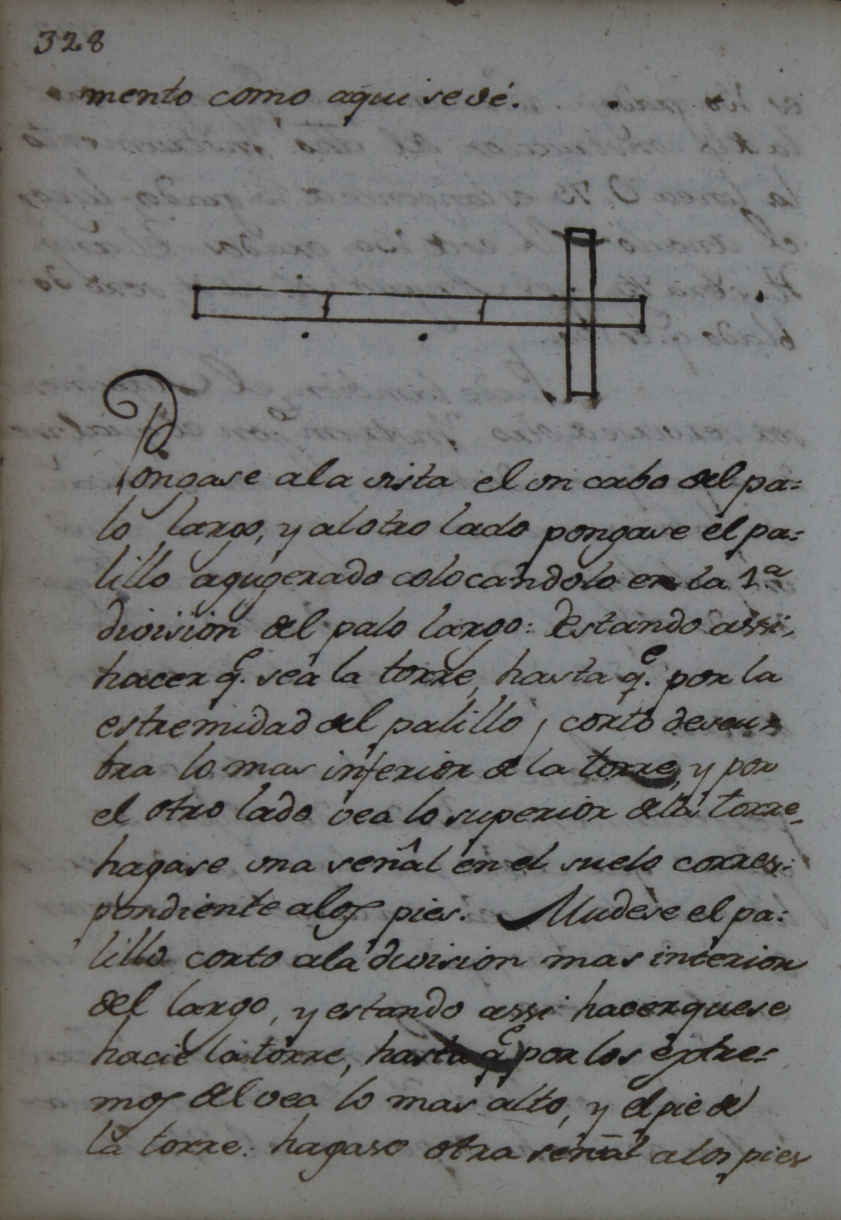 328
mento como aqui se vé.
Pongase a la vista el vn cabo del pa=
lo largo, y al otro lado pongase el pa=
lillo agugerado colocandolo en la 1.ª
division del palo largo: Estando assi,
hacer q.e sea la torre, hasta q.e por la
estremidad del palillo corto descu=
bra lo mas inferior de la torre, y por
el otro lado vea lo superior de la torre
hagase vna señal en el suelo corres=
pondiente a los pies. Mudese el pa=
lillo corto a la division mas interior
del largo, y estando assi hacerquese
hacie la torre, hasta q.e por los extre=
mos del vea lo mas alto, y el pie de
la torre: hagase otra señal a los pies